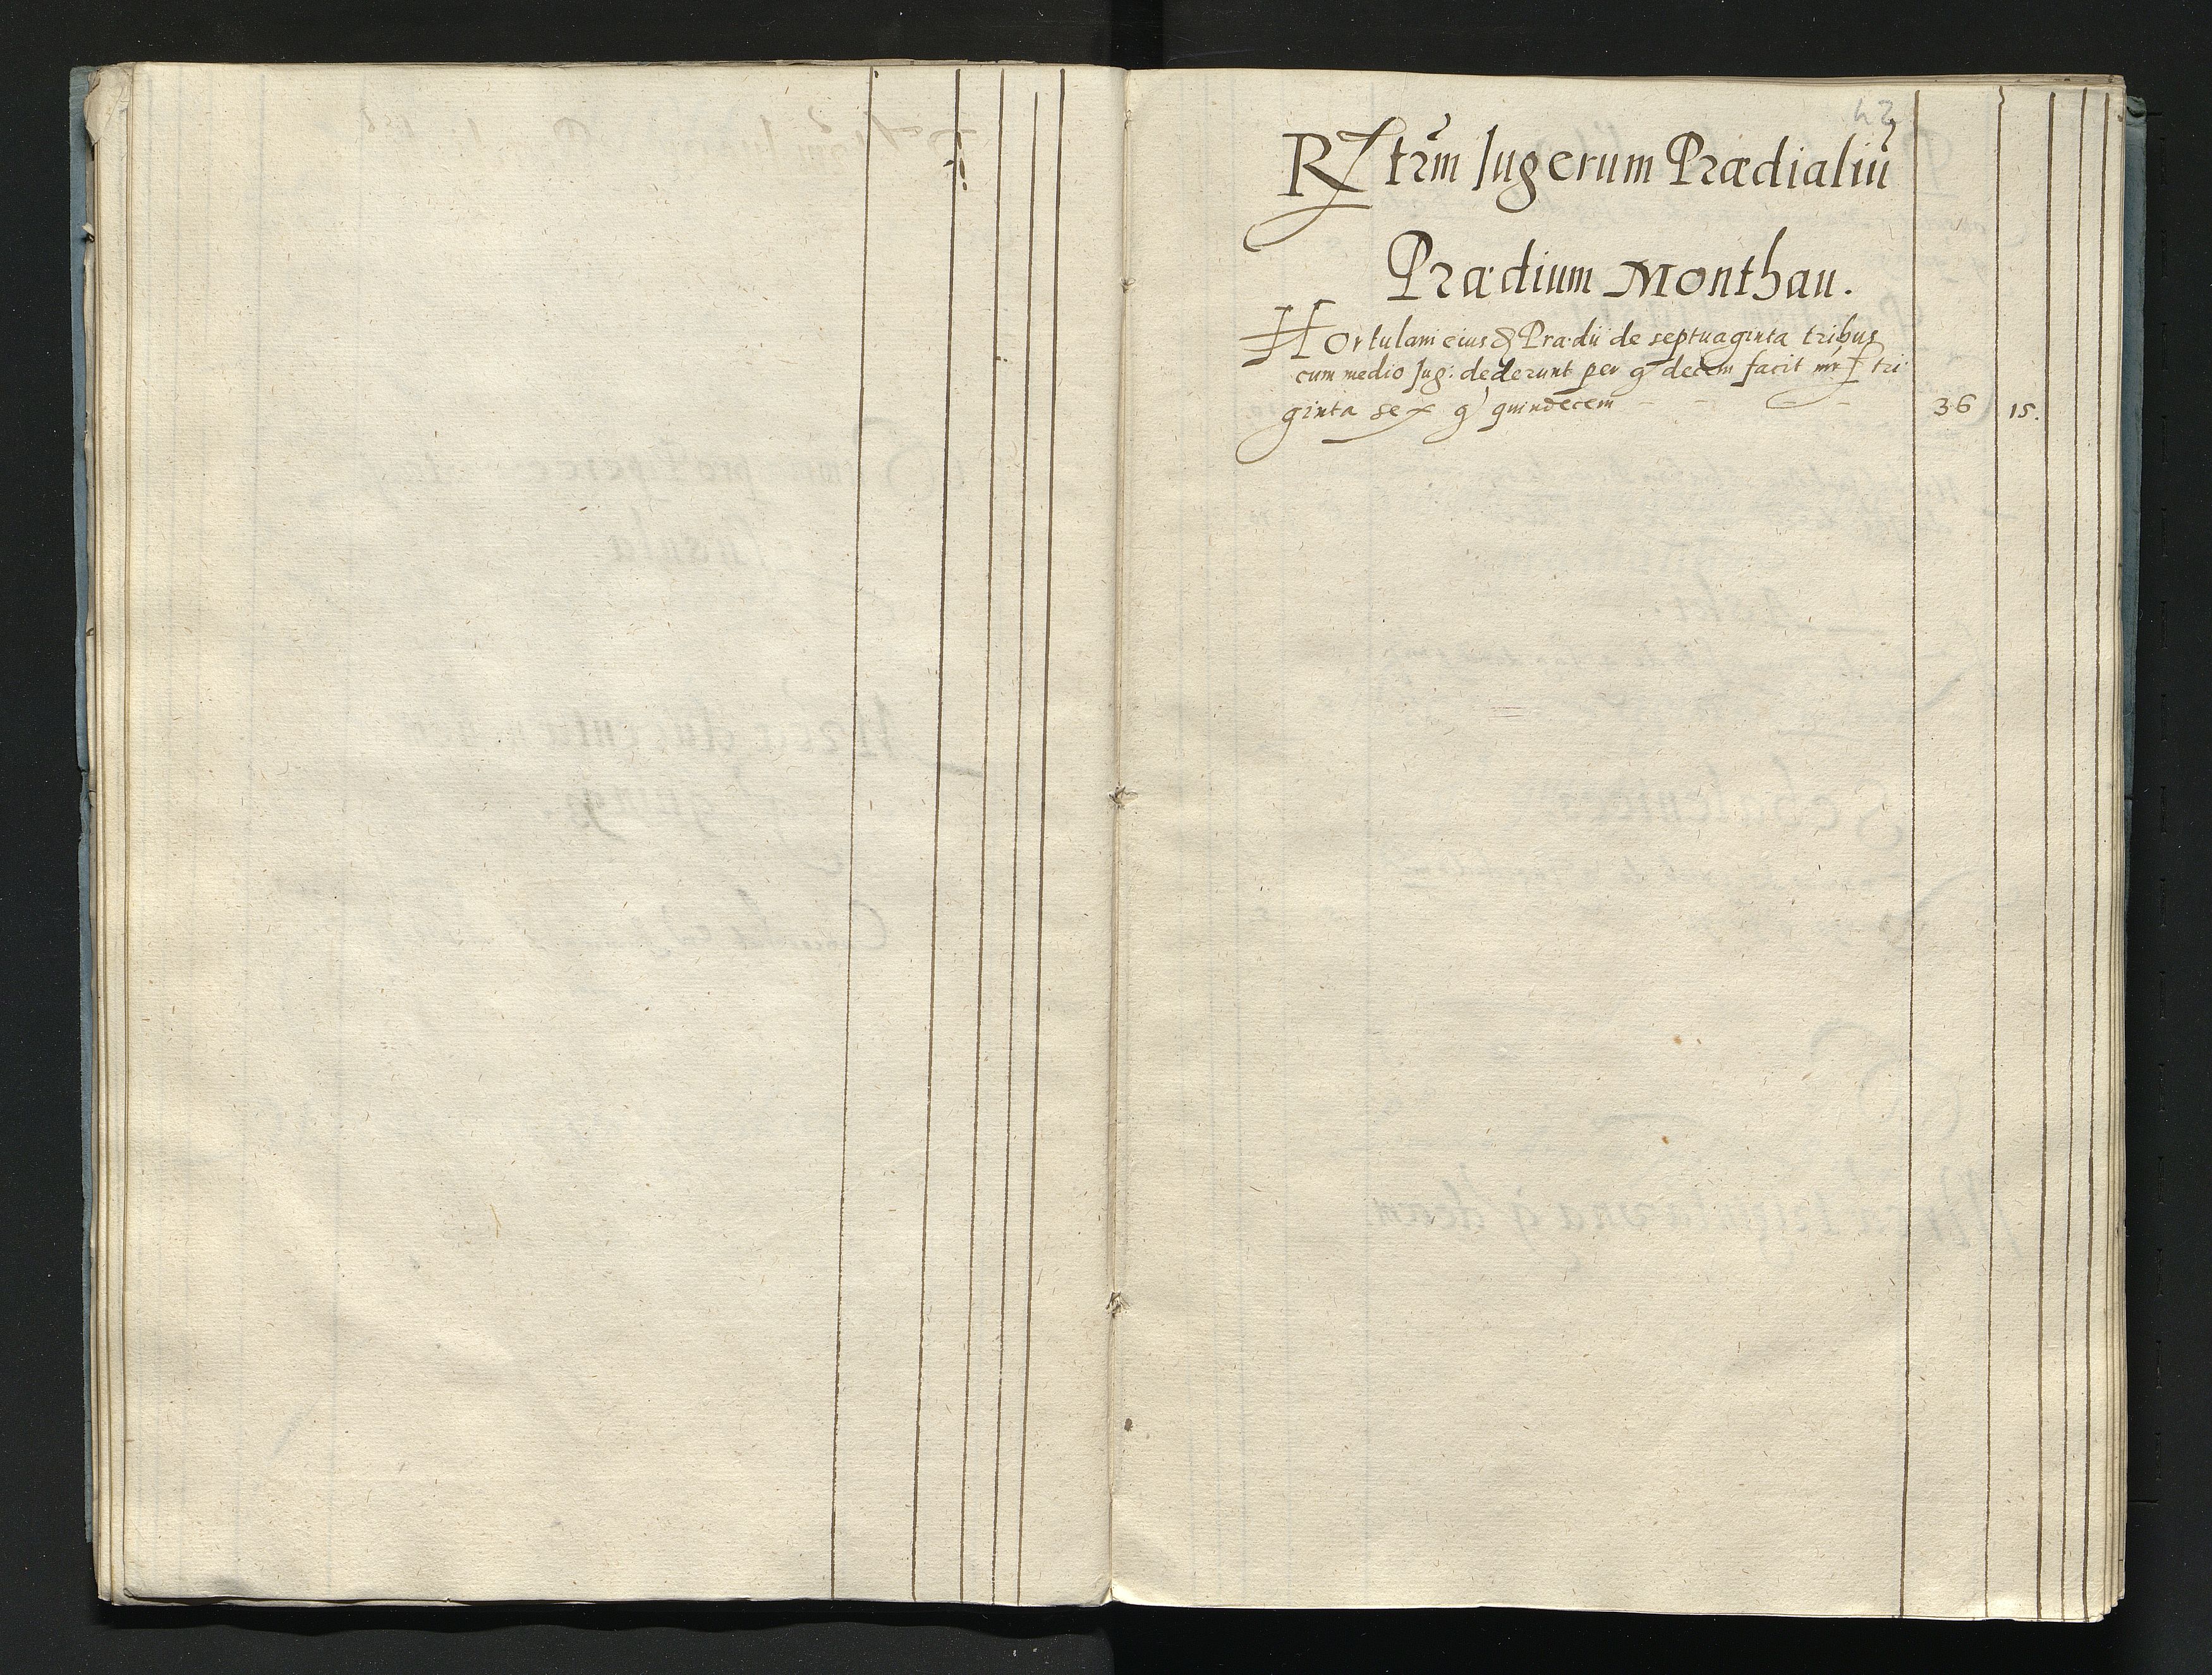 42
R trm Jugerum Prædialiu
Prædium Monthau.
Hortulani eius Prædii de septuaginta tribus
cum medio Jug: dederunt per g decem facit mr tri
ginta sex g quindecem 36 15.